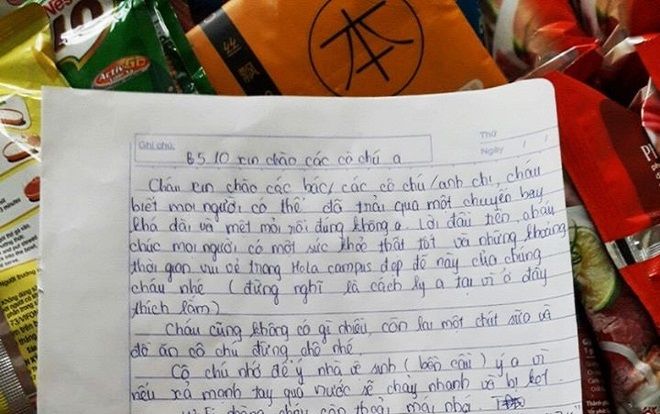 Nes
ACTIV-GO
本
PI
Ghi chú:
Thứ
Ngày / /
B5.10 xin chào các cô chú ạ
Cháu xin chào các bác/ các cô chú/anh chị, cháu
biết mọi người có thể đã trải qua một chuyến bay
khá dài và mệt mỏi rồi đúng không ạ. Lời đầu tiên, cháu
chúc mọi người có một sức khỏe thật tốt và những khoảng
thời gian vui vẻ trong Hola campus đẹp đẽ này của chúng
cháu nhé (đừng nghĩ là cách ly ạ tại vì ở đây
thích lắm)
Cháu cũng không có gì nhiều, còn lại một chút sữa và
đồ ăn cô chú đừng chê nhé.
Cô chú nhớ để ý nhà vệ sinh (bồn cầu) ý ạ vì
nếu xả mạnh tay quá nước sẽ chảy nhanh và bị kẹt.